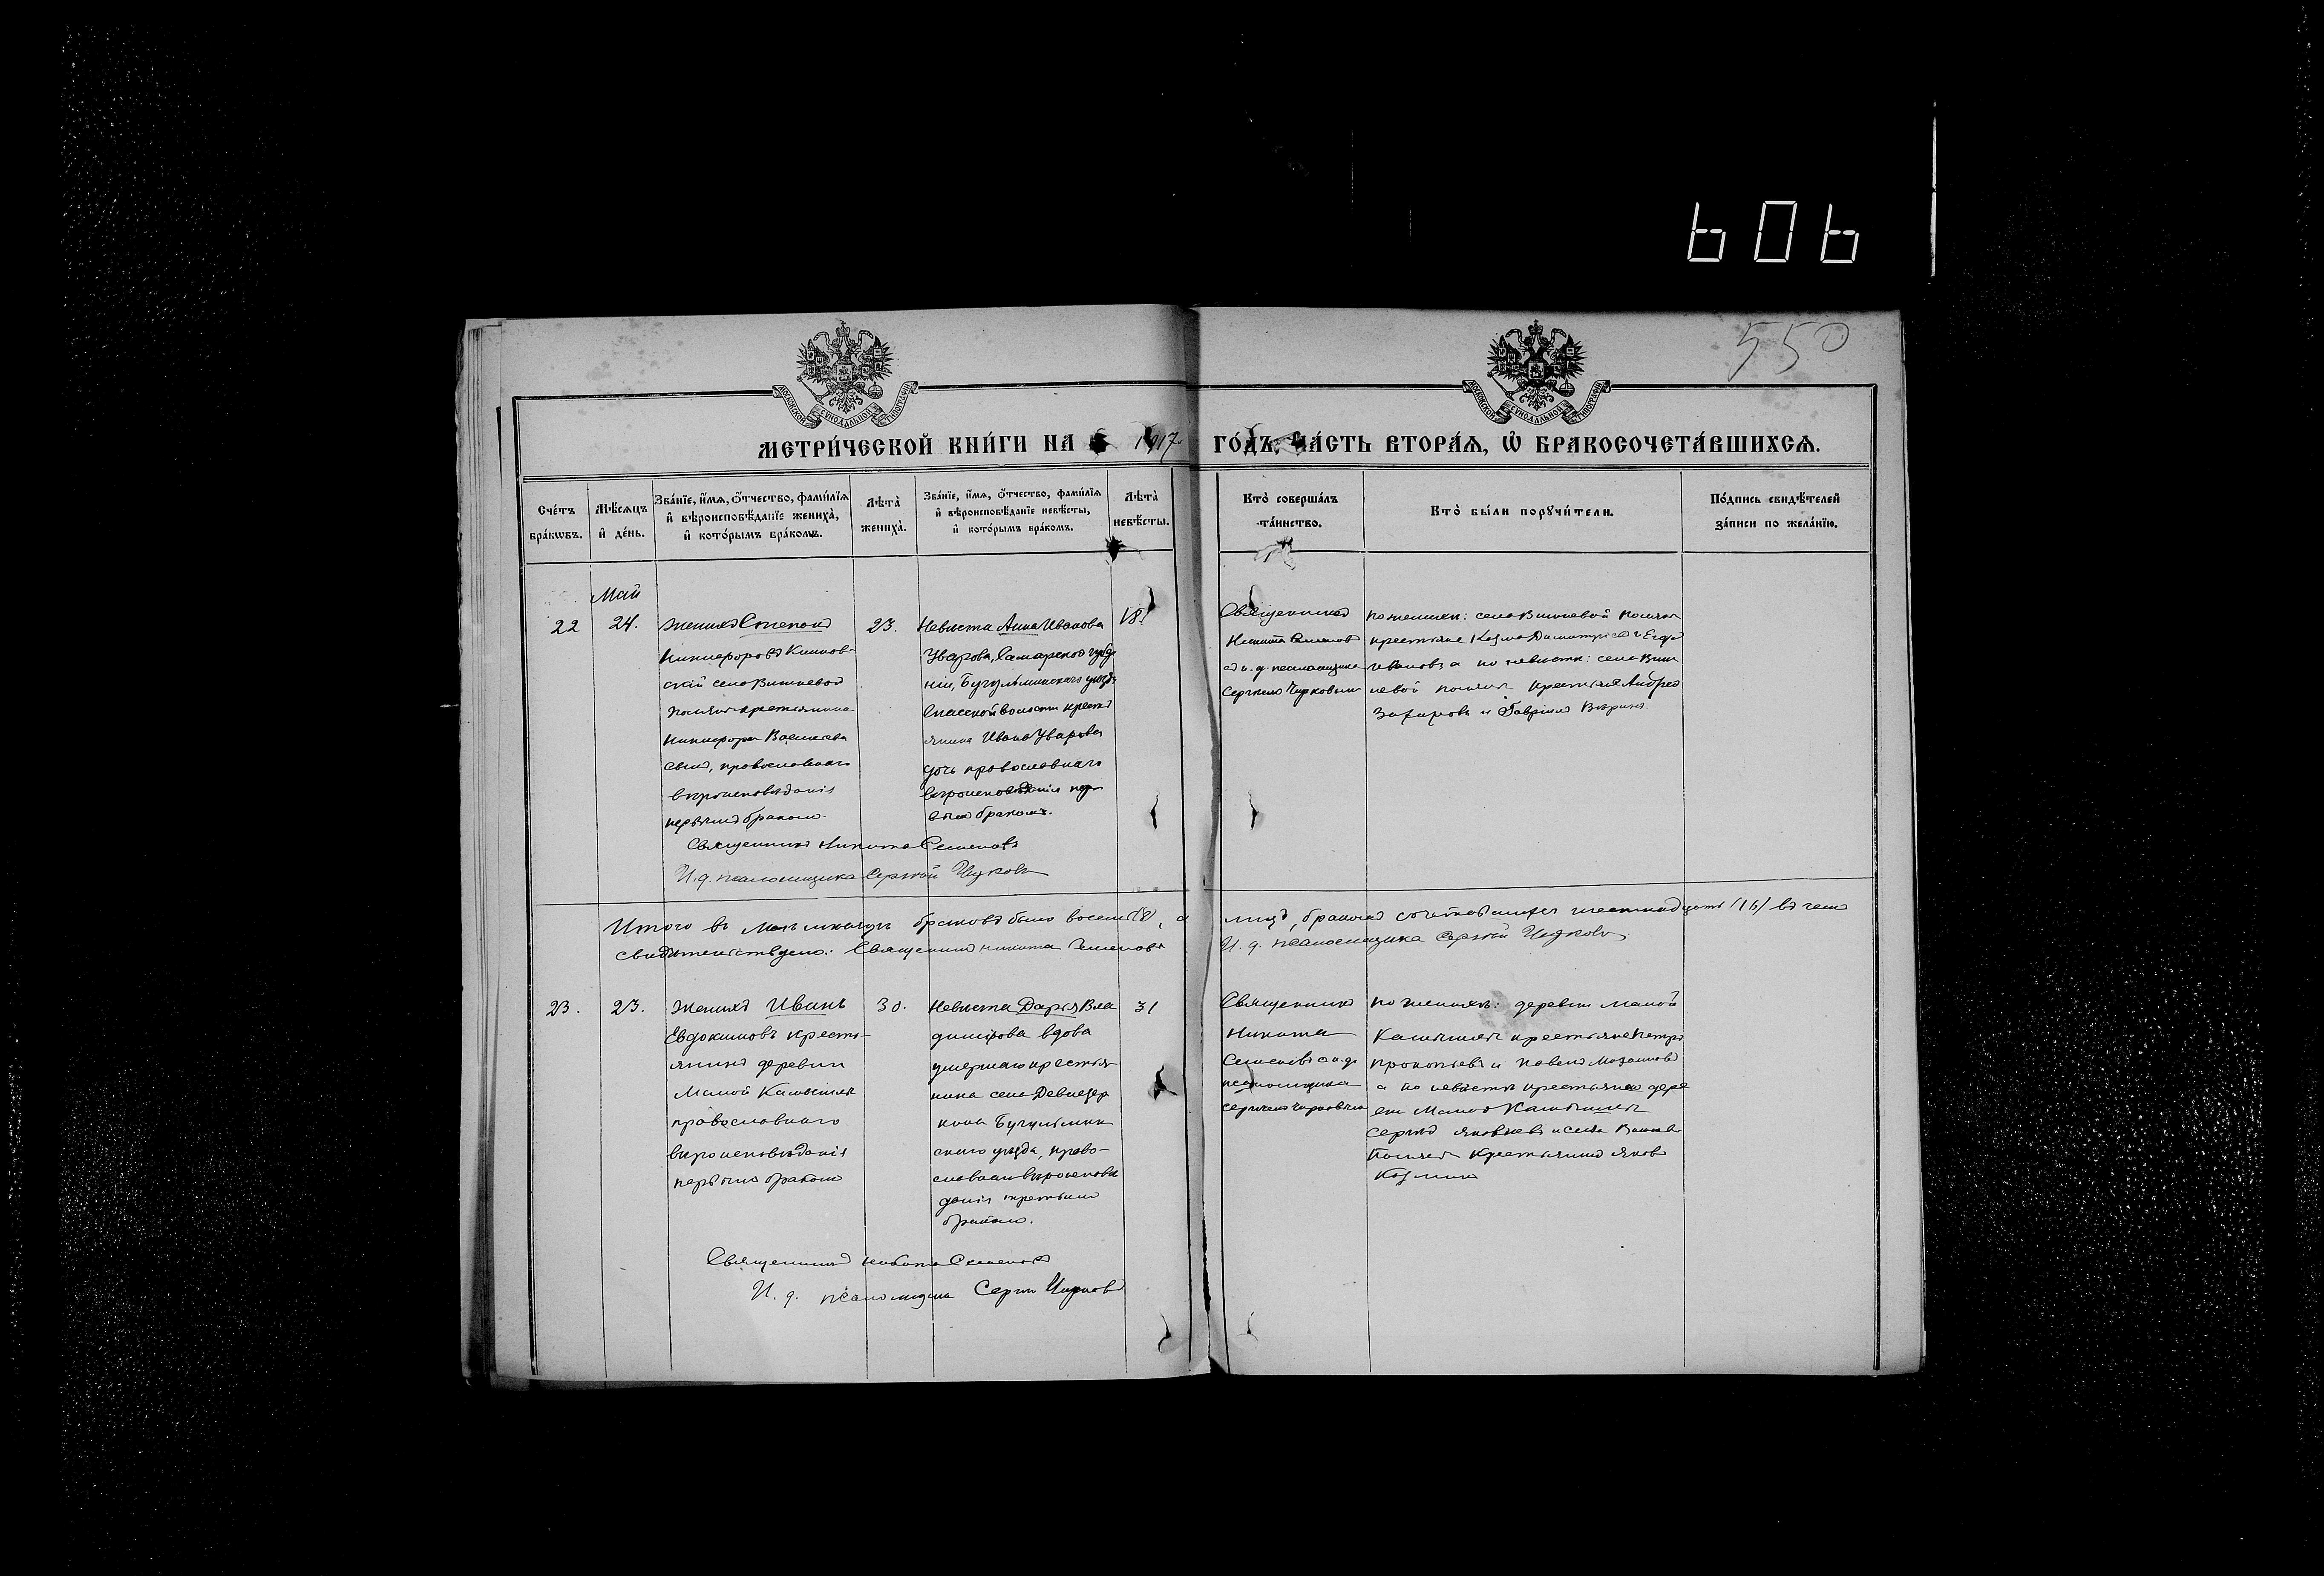 606
550
МЕТРИ́ЧЕСКОЙ КНИ́ГИ НА 1917 ГО́ДЪ, ЧА́СТЬ ВТОРА́Ѧ, Ѡ БРАКОСОЧЕТА́ВШИХСѦ.
Сче́тъ бра́кѡвъ.
Мѣ́сѧцъ и де́нь.
Зва́нїе, и́мѧ, ѻ́тчество, фами́лїѧ и вѣроисповѣ́данїе жениха̀, и кото́рымъ бра́комъ.
Лѣта̀ жениха̀.
Зва́нїе, и́мѧ, ѻ́тчество, фами́лїѧ и вѣроисповѣ́данїе невѣ́сты, и кото́рымъ бра́комъ.
Лѣта̀ невѣ́сты.
Кто̀ соверша́лъ та́инство.
Кто̀ бы́ли порꙋчи́тели.
По́дпись свидѣ́телей за́писи по жела́нїю.
Май
22
24.
Женихъ Степанъ
Никифоровъ
село Вишневой
Поляны крестьянина
Никифора Васильева
сынъ, православнаго
вѣроисповѣданія
первымъ бракомъ.
23.
Невѣста Анна Иванова
Уварова, Самарской губер
ніи, Бугульминскаго уѣзда
Спасской волости кресть
янина Ивана Уварова
дочь православнаго
вѣроисповѣданія пер
вымъ бракомъ.
18
Священникъ
Никита Семеновъ
съ и. д. псаломщика
Сергѣемъ Чурковымъ
по женихѣ: села Вишневой Поляны
крестьяне Козма Димитріевъ и Егоръ
Ивановъ а по невѣстѣ: села Виш
невой поляны крестьяне Андрей
Захаровъ и Гавріилъ
Священникъ Никита Семеновъ
И. д. псаломщика Сергѣй Чурковъ
Итого въ Маѣ мѣсяцѣ браковъ было восемь (8), а лицъ, бракомъ сочетавшихся шестнадцать (16) въ чемъ
свидѣтельствуемъ: Священникъ Никита Семеновъ И. д. псаломщика Сергѣй Чурковъ
23.
23.
Женихъ Иванъ
Евдокимовъ кресть-
янинъ деревни
Малой Камышлы
православнаго
вѣроисповѣданія
первымъ бракомъ
30.
Невѣста Дарія Вла
димірова вдова
умершаго крестья
нина села
Бугульмин
скаго уѣзда, право-
славнаго вѣроисповѣ
данія третьимъ
бракомъ.
31
Священникъ
Никита
Семеновъ съ и. д.
псаломщика
Сергѣемъ Чурковымъ
по женихѣ: деревни Малой
Камышлы крестьяне Петръ
Прокопьевъ и Павелъ
а по невѣстѣ крестьяне дере
вни Малой Камышлы
Сергѣй Яковлевъ и села Вишневой
Поляны Крестьянинъ Яковъ
Козминъ
Священникъ Никита Семеновъ
И. д. псаломщика Сергѣй Чурковъ